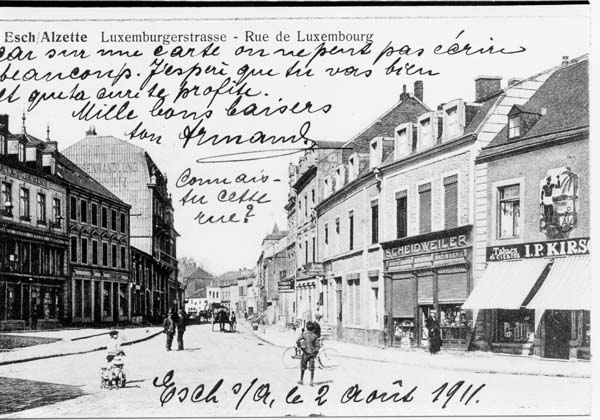 Esch/Alzette Luxemburgerstrasse - Rue de Luxembourg
car sur une carte on ne peut pas écrire
beaucoup. J'espère que tu vas bien
et que ta cure te profite.
Mille bons baisers
ton Armand
Connais-
tu cette
rue?
SCHEIDWEILER
Tabacs
& CIGARES
J.P. KIRSC
Esch s/A, le 2 août 1911.